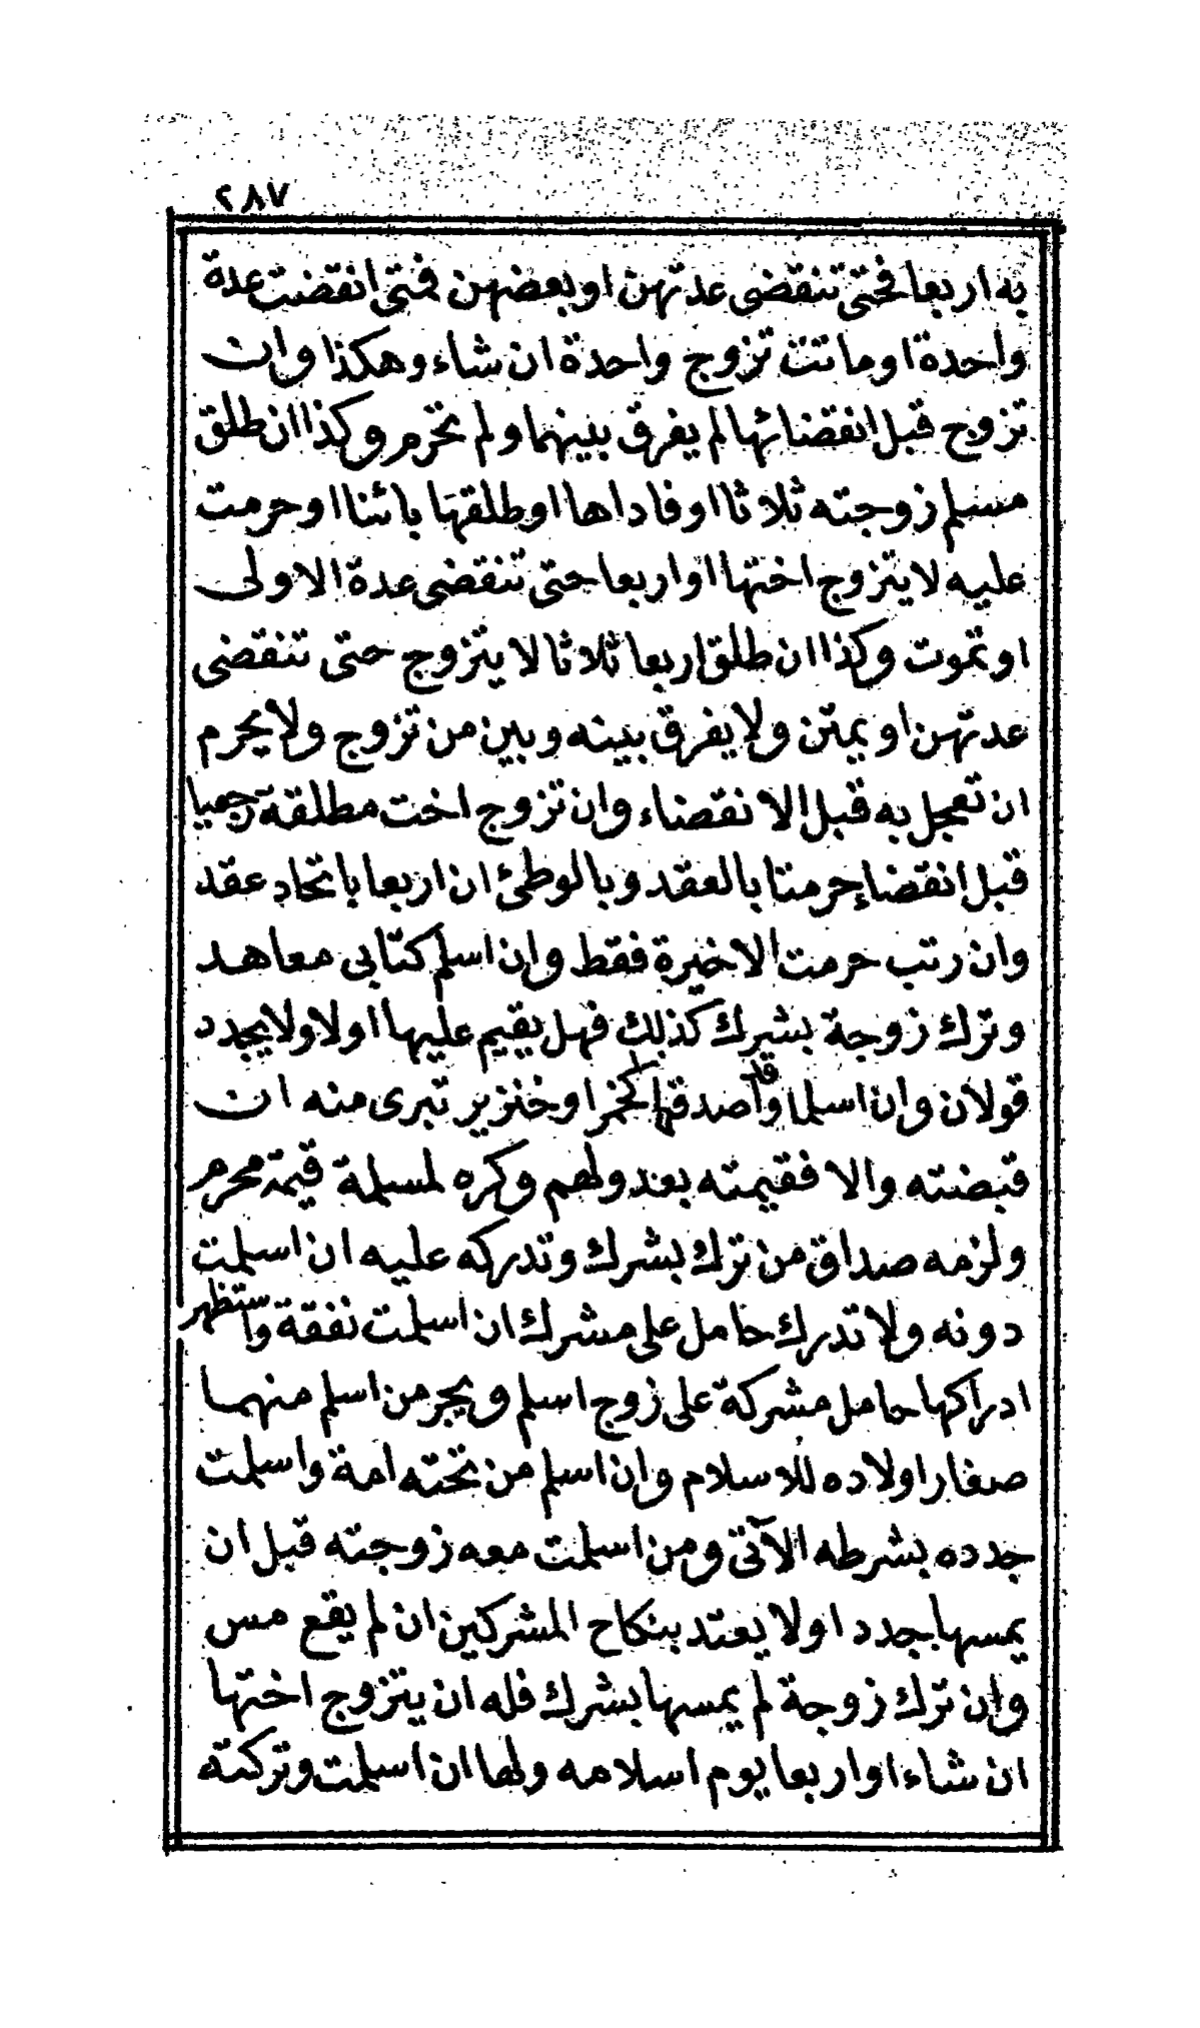 ٢٨٧
به اربعا فحتى تنقضى عدتهن او بعضهن فمتى انقضت عدة
واحدة او ماتت تزوج واحدة ان شاء وهكذا وان
تزوج قبل انقضائها لم يفرق بينهما ولم تحرم وكذا ان طلق
مسلم زوجته ثلاثا او فاداها او طلقها بائنا او حرمت
عليه لا يتزوج اختها او اربعا حتى تنقضى عدة الاولى
او تموت وكذا ان طلق اربعا ثلاثا لا يتزوج حتى تنقضى
عدتهن او يمتن ولا يفرق بينه وبين من تزوج ولا يحرم
ان تعجل به قبل الانقضاء وان تزوج اخت مطلقة رجعيا
قبل انقضاء حرمتا بالعقد وبالوطئ ان اربعا باتحاد عقد
وان رتب حرمت الاخيرة فقط وان اسلم كتابى معاهد
وترك زوجة بشرك كذلك فهل يقيم عليها او لا ولا يجدد
قولان وان اسلما وقد اصدقها كخمر او خنزير تبرى منه ان
قبضته والا فقيمته بعد ولهم وكره لمسلمة قيمة محرم
ولزمه صداق من ترك بشرك وتدركه عليه ان اسلمت
دونه ولا تدرك حامل على مشرك ان اسلمت نفقة واستظهر
ادراكها حامل مشركة على زوج اسلم ويجر من اسلم منهما
صغار اولاده للاسلام وان اسلم من تحته امة واسلمت
جدده بشرطه الآتى ومن اسلمت معه زوجته قبل ان
يمسها جدد او لا يعتد بنكاح المشركين ان لم يقع مس
وان ترك زوجة لم يمسها بشرك فله ان يتزوج اختها
ان شاء او اربعا يوم اسلامه ولها ان اسلمت وتركته